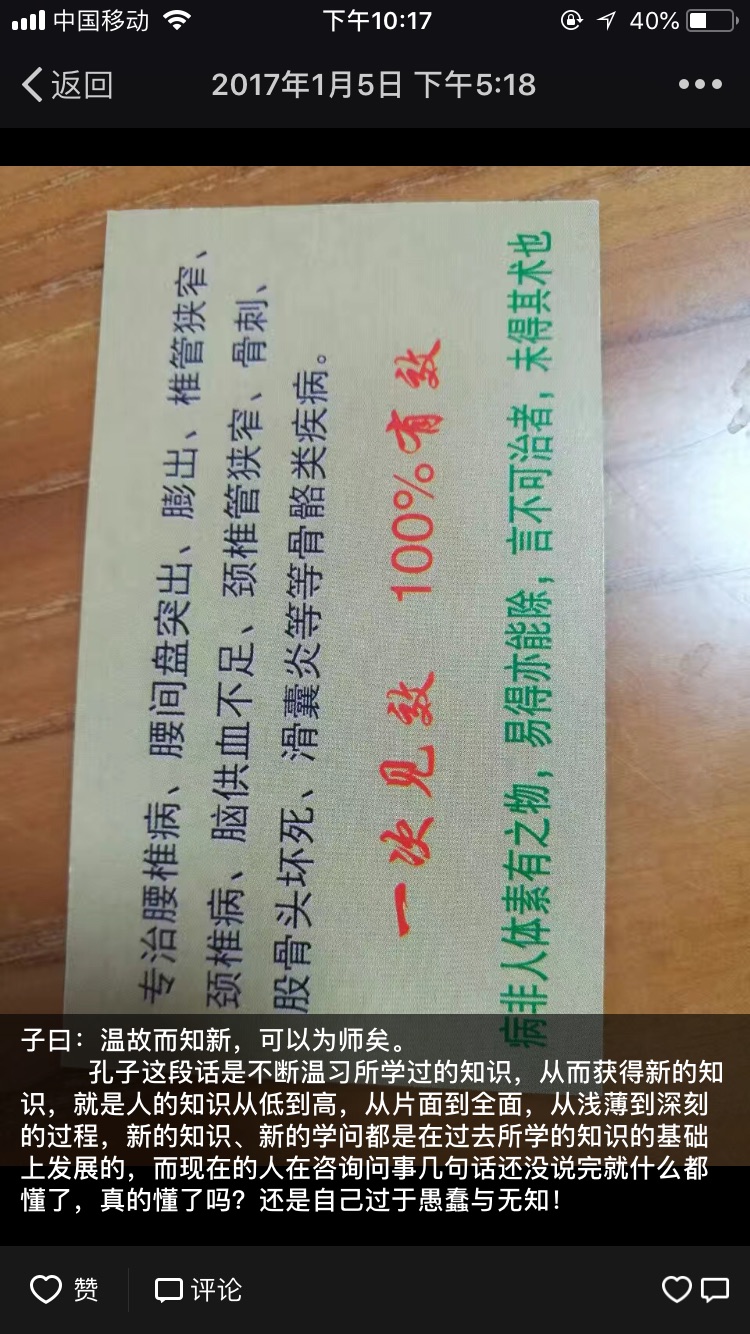 中国移动 下午10:17 40%
返回 2017年1月5日 下午5:18
专治腰椎病、腰间盘突出、膨出、椎管狭窄、
颈椎病、脑供血不足、颈椎管狭窄、骨刺、
股骨头坏死、滑囊炎等等骨骼类疾病。
一次见效 100%有效
病非人体素有之物，易得亦能除，言不可治者，未得其术也
子曰：温故而知新，可以为师矣。
孔子这段话是不断温习所学过的知识，从而获得新的知
识，就是人的知识从低到高，从片面到全面，从浅薄到深刻
的过程，新的知识、新的学问都是在过去所学的知识的基础
上发展的，而现在的人在咨询问事几句话还没说完就什么都
懂了，真的懂了吗？还是自己过于愚蠢与无知！
赞 评论